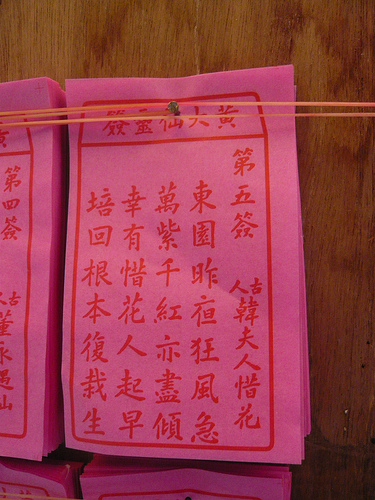 黃大仙靈簽
第五簽 古人韓夫人惜花
東園昨夜狂風急
萬紫千紅亦盡傾
幸有惜花人起早
培回根本復栽生
第四簽 古人董永遇仙